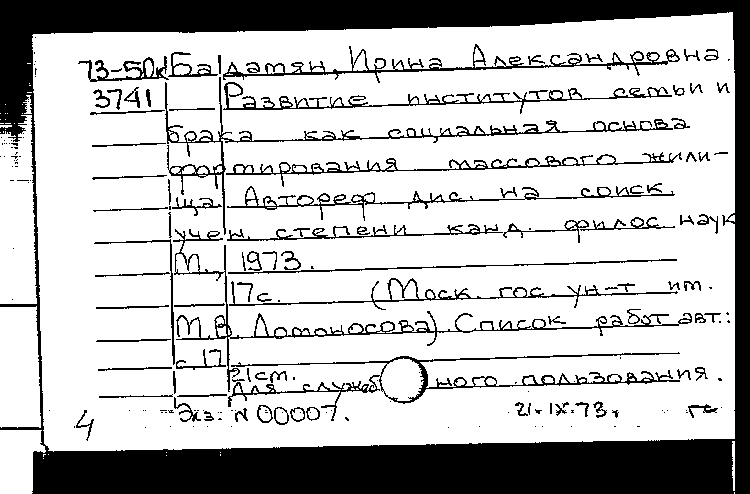 73-50к Балдатян, Ирина Александровна.
3741 Развитие институтов семьи и
брака как социальная основа
формирования массового жили-
ща. Автореф. дис. на соиск.
учен. степени канд. филос. наук
М., 1973.
17с. (Моск. гос. ун-т им.
М.В. Ломоносова). Список работ авт.:
с.17
21см.
Для служебного пользования.
Экз. N 00007. 21.IX.73г.
4